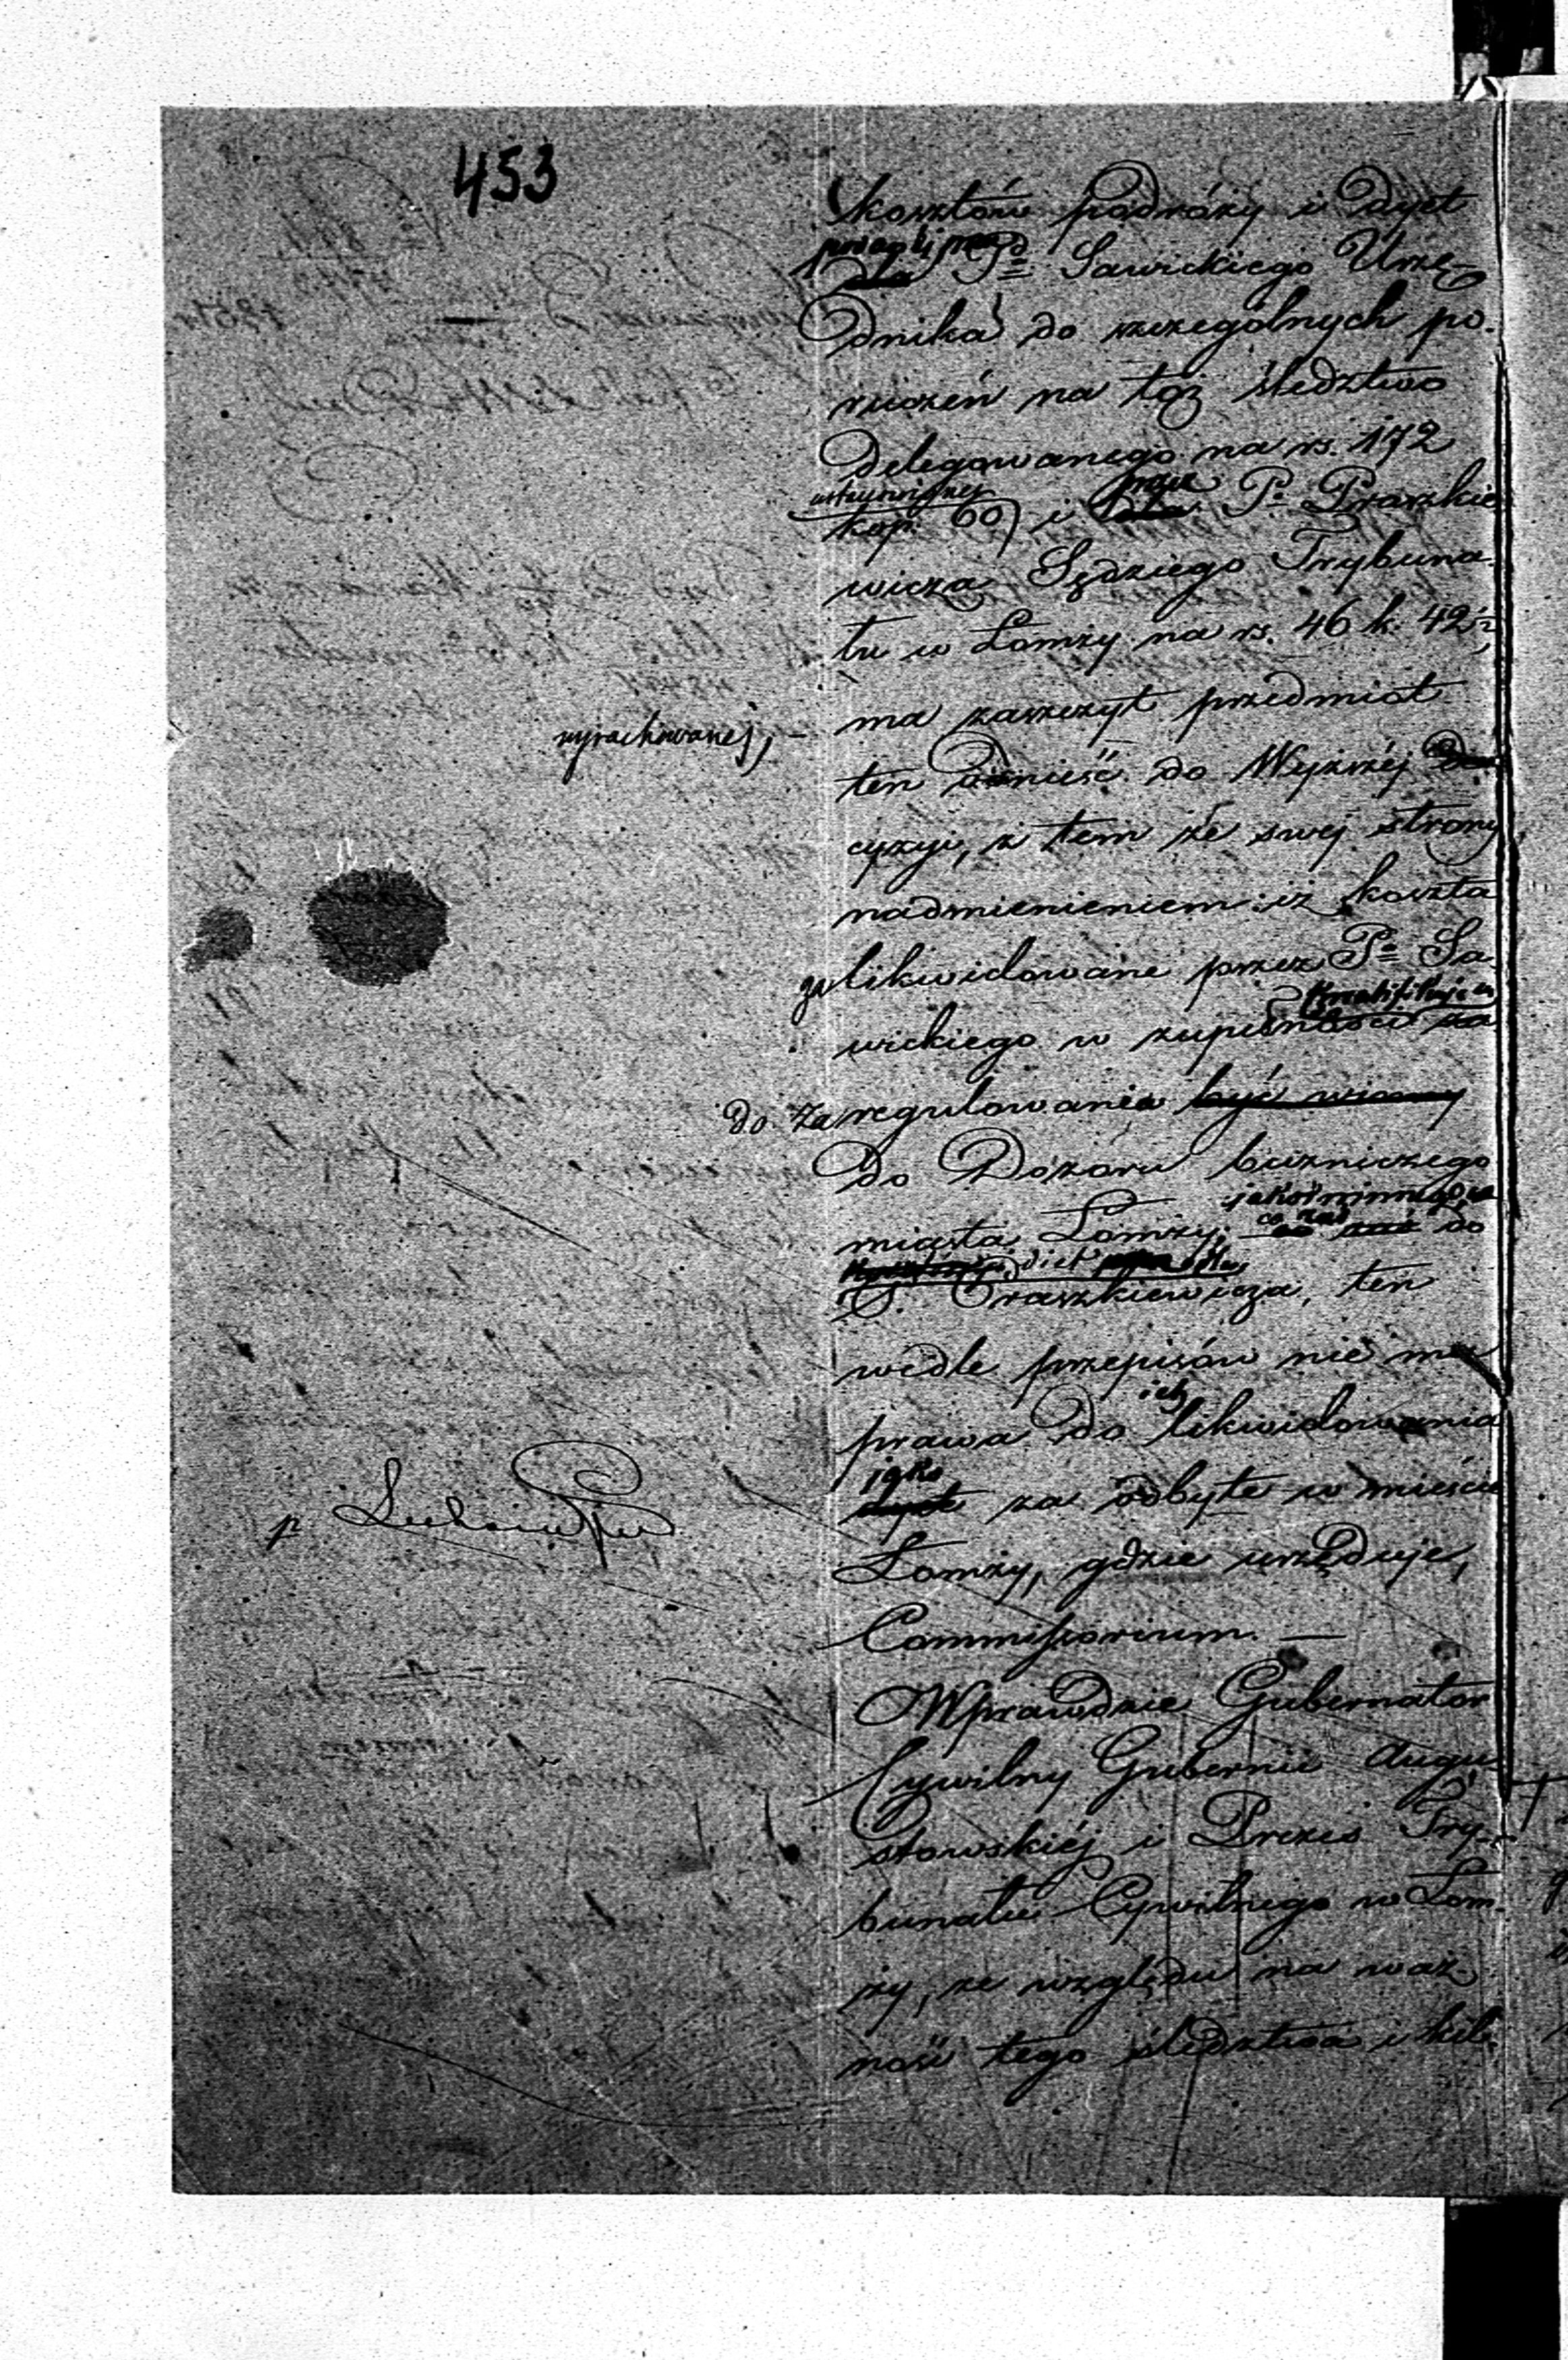 453
kosztów podróży i dyet
dla przez Pa Sawickiego Urzę
dnika do szczególnych po.
ruczeń na toż śledztwo
delegowanego na rs. 172
kop. 60) i dla przez Pa Praszkie
wicza Sędziego Trybuna
łu w Łomży na rs. 46 k. 42½
wyrachowanej, –
ma zaszczyt przedmiot
ten wnieść do Wyższéj De
cyzyi, z tem ze swej strony
nadmienieniem: iż koszta
zalikwidowane przez Pa Sa
wickiego w zupełności kwalifikują się
do zaregulowania być winny
do Dozoru bużniczego
miasta Łomży, co zaś do
diet dla
P. Praszkiewicza, ten
wedle przepisów nie ma
prawa do ich likwidowania
jako
dyet za odbyte w mieście
Łomży, gdzie urzęduje,
Commissorium. —
Wprawdzie Gubernator
Cywilny Gubernii Augu
stowskiéj i Prezes Try-
bunału Cywilnego w Łom-
ży, ze względu na waż-
ność tego śledztwa i kil-